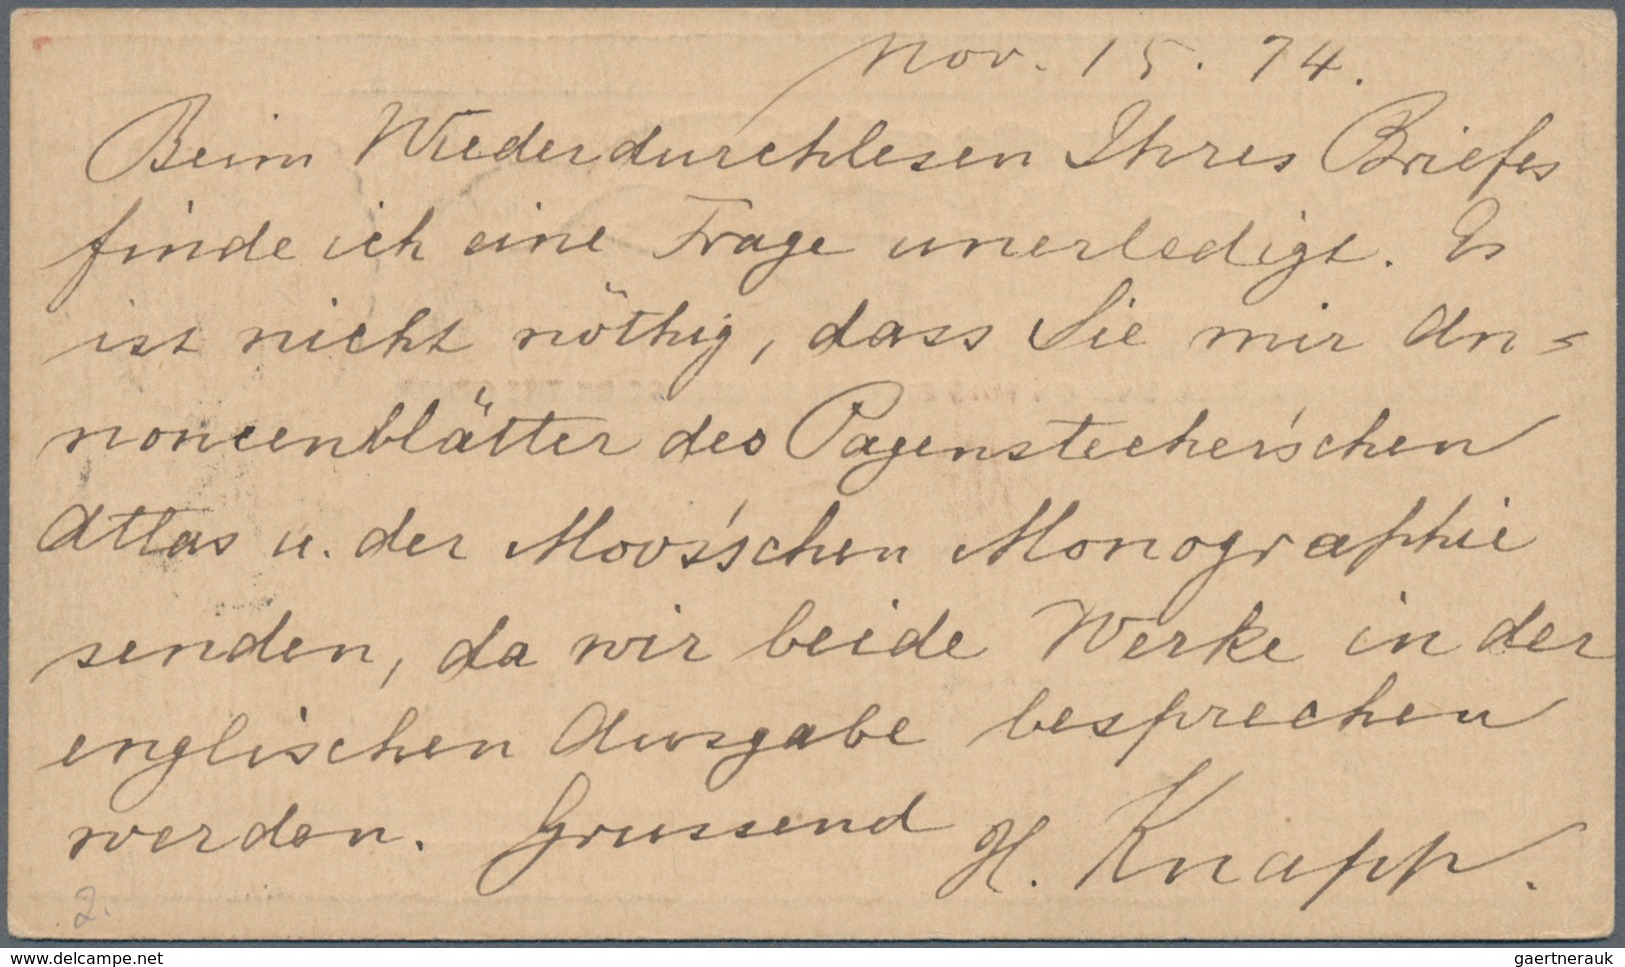 Nov. 15. 74.
Beim Wiederdurchlesen Ihres Briefes
finde ich eine Frage unerledigt. Es
ist nicht nöthig, dass Sie mir An=
noncenblätter des Pagenstecher'schen
Atlas u. der Moos'schen Monographie
senden, da wir beide Werke in der
englischen Ausgabe besprechen
werden. Grussend H. Knapp.
2.
www.delcampe.net
gaertnerauk